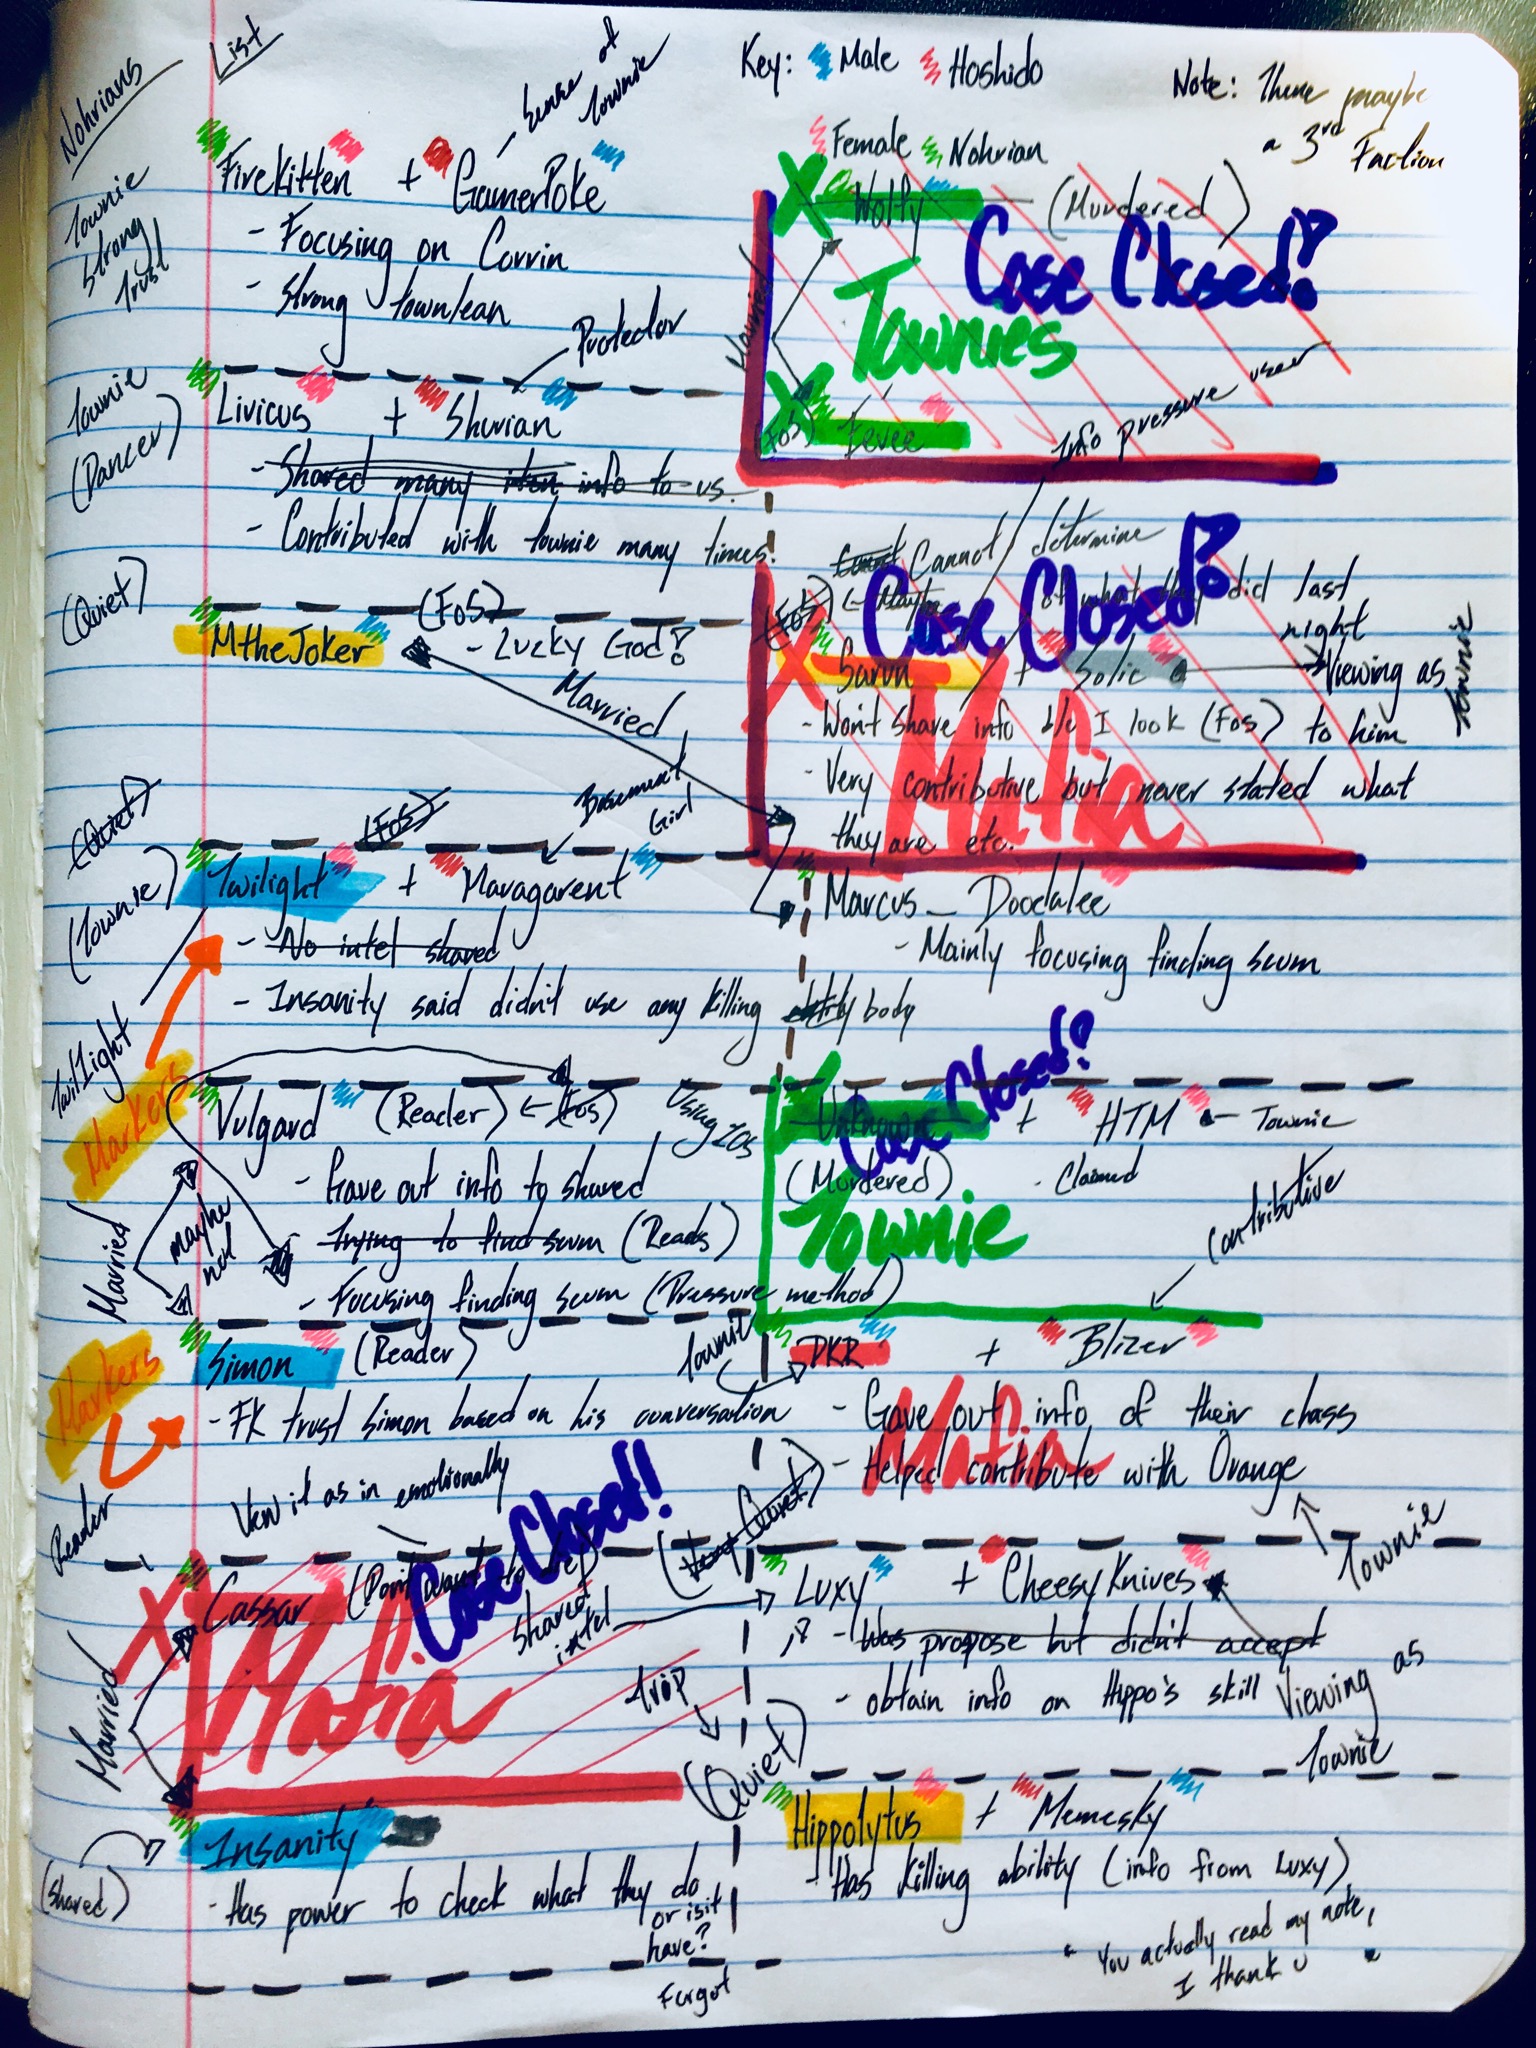 Nohrians
List
Key: Male Hoshido
Female Nohrian
Note: There maybe
a 3rd Faction
Sense of
Townie
Townie
Strong
Trust
FireKitten + GamerPoke
- Focusing on Corrin
- Strong townlean
Protector
Townie
(Dancer)
Livicus + Shurian
- Shared many info to us.
- Contributed with townie many times.
(Quiet)
(FoS)
MtheJoker - Lucky God!
Married
Basement
Girl
(Quiet)
(Townie)
(FoS)
Twilight + Maragarent
- No intel shared
- Insanity said didn't use any killing body
Twilight
Markers
Married
maybe
not
Vulgard (Reader) ← (FoS)
Using IOs
- Gave out info to shared
- Trying to find scum (Reads)
- Focusing finding scum (Pressure method)
Markers
Reader
Simon (Reader)
- FK trust Simon based on his conversation
View it as in emotionally
Case Closed!
Cassar (Don't want to die)
shared
intel
Mafia
Married
(shared)
Insanity
- Has power to check what they do
or isit
have?
Forgot
Wolfy (Murdered)
Case Closed!
Married
Townies
(FoS) Eevee
Info pressure user
Cannot determine
(FoS) ← Maybe of what they did last
night
Case Closed!
Sarun + Solic Viewing as
Townie
- Won't share info b/c I look (FoS) to him
- Very contributive but never stated what
they are etc.
Mafia
Marcus - Doodalee
- Mainly focusing finding scum
Case Closed!
Unknown + HTM ← Townie
(Murdered) - Claimed
Townie
Contributive
Townie
DKR + Blizer
- Gave out info of their class
- Helped contribute with Orange
Mafia
Townie
(Very Quiet)
Luxy + CheesyKnives
- Was propose but didn't accept
- obtain info on Hippo's skill
Viewing as
Townie
(Quiet)
Hippolytus + Memesky
- Has killing ability (info from Luxy)
"You actually read my note,
I thank U"